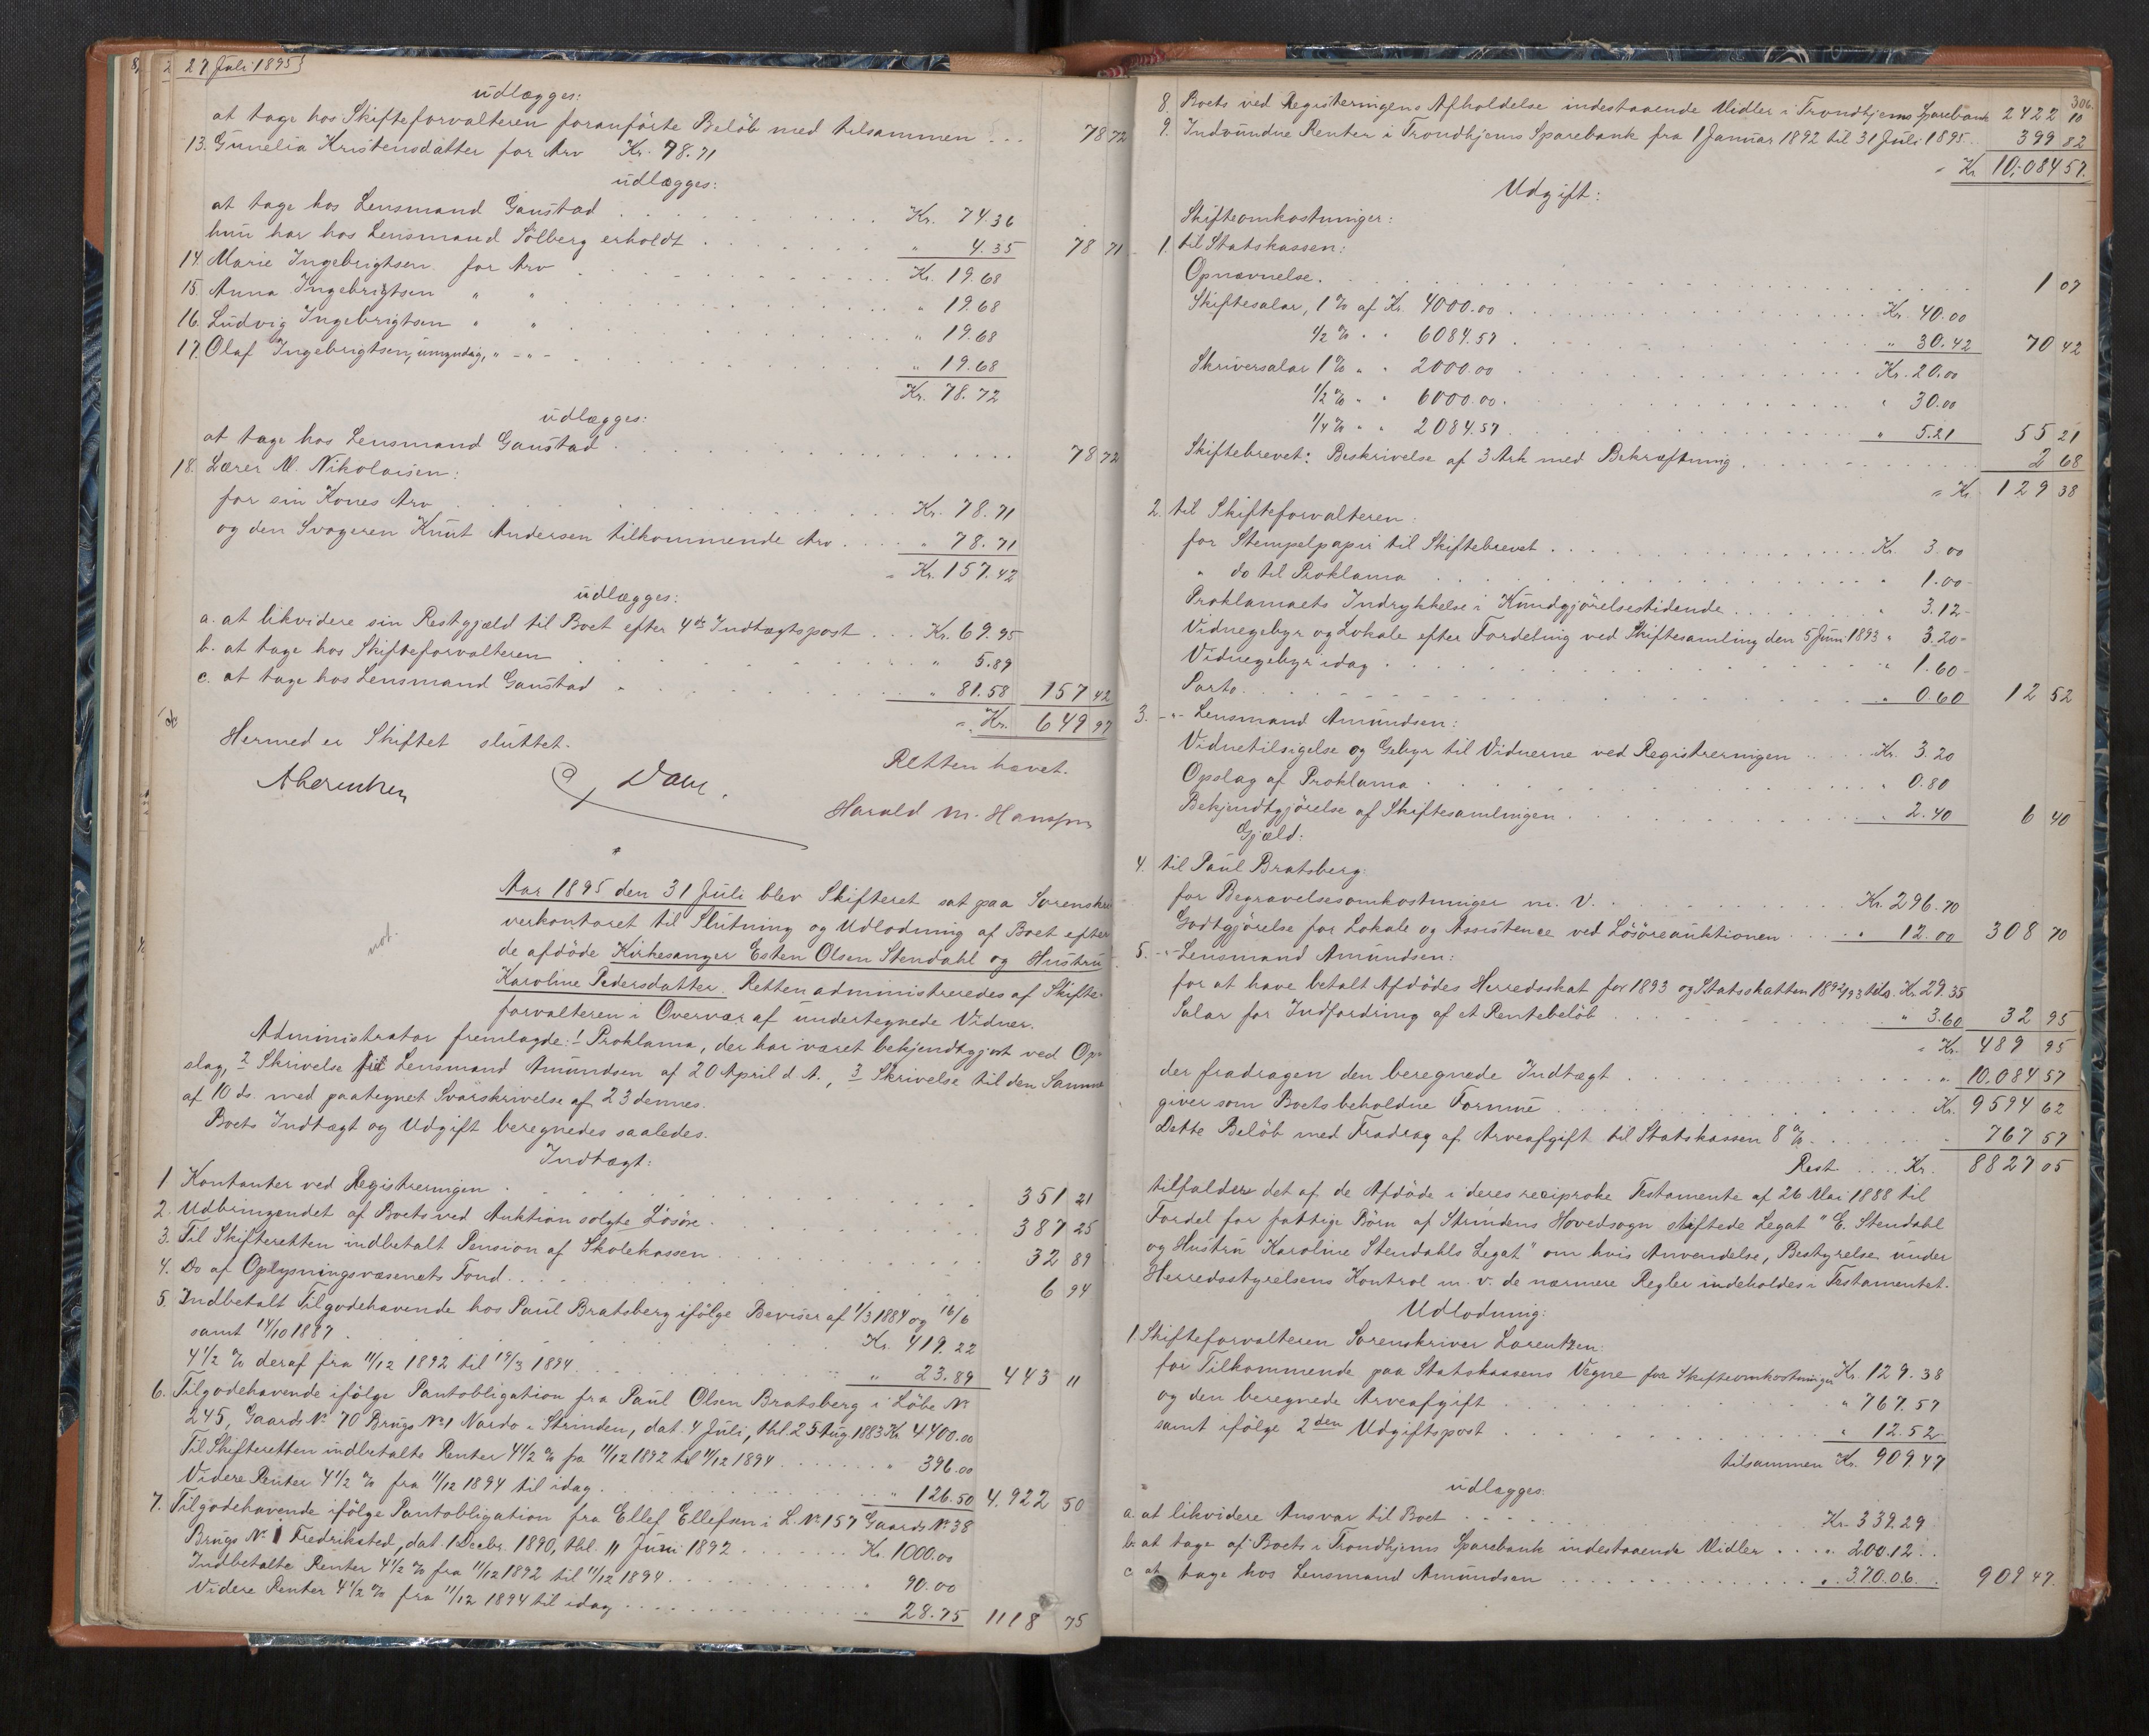 27 Juli 1895
udlægges:
at tage hos Skifteforvalteren foranførte Beløb med tilsammen ... 78 72
13. Gunelia Kristensdatter for Arv Kr. 78.71
udlægges:
at tage hos Lensmand Gaustad . . . Kr. 74.36
hun har hos Lensmand Solberg erholdt . . . " 4.35 78 71
14. Marie Ingebrigtsen for Arv . . . Kr. 19.68
15. Anna Ingebrigtsen " " . . . " 19.68
16. Ludvig Ingebrigtsen " " . . . " 19.68
17. Olaf Ingebrigtsen, umyndig, " - " - . . . " 19.68
Kr. 78.72
udlægges:
at tage hos Lensmand Gaustad . . . 78 72
18. Lærer M. Nikolaisen:
for sin Kones Arv . . . Kr. 78.71
og den Svogeren Knut Andersen tilkommende Arv . . . " 78.71
= Kr. 157.42
udlægges:
a. at likvidere sin Restgjæld til Boet efter 4de Indtægtspost . . . Kr. 69.95
b. at tage hos Skifteforvalteren . . . " 5.89
c. at tage hos Lensmand Gaustad . . . " 81.58 157 42
= Kr. 649 97
Hermed er Skiftet sluttet.
Retten hævet.
Harald M. Hansen
Aar 1895 den 31 Juli blev Skifteret sat paa Sorenskri
verkontoret til Slutning og Udlodning af Boet efter
de afdöde Kirkesanger Esten Olsen Stendahl og Hustru
Karoline Pedersdatter. Retten administreredes af Skifte-
forvalteren i Overvær af undertegnede Vidner.
Administrator fremlagde: 1 Proklama, der har været bekjendtgjort ved Op-
slag, 2 Skrivelse til Lensmand Amundsen af 20 April d. A., 3 Skrivelse til den Samme
af 10 ds. med paategnet Svarskrivelse af 23 dennes.
Boets Indtægt og Udgift beregnedes saaledes.
Indtægt:
1 Kontanter ved Registreringen . . . 351 21
2. Udbringendet af Boets ved Auktion solgte Lösöre . . . 387 25
3. Til Skifteretten indbetalt Pension af Skolekassen . . . 32 89
4. Do af Oplysningsvæsenets Fond . . . 6 94
5. Indbetalt Tilgodehavende hos Paul Bratsberg ifölge Beviser af 1/3 1884 og 16/6
samt 14/10 1887 . . . Kr. 419.22
4 1/2 % deraf fra 11/12 1892 til 19/3 1894 . . . " 23.89 443 11
6. Tilgodehavende ifölge Pantobligation fra Paul Olsen Bratsberg i Löbe No
245, Gaards No 70 Brugs No 1 Nardo i Strinden, dat. 4 Juli, thl. 25 Aug 1883 Kr. 4400.00
Til Skifteretten indbetalte Renter 4 1/2 % fra 11/12 1892 til 11/12 1894 . . . " 396.00
Videre Renter 4 1/2 % fra 11/12 1894 til idag . . . " 126.50 4.922 50
7. Tilgodehavende ifölge Pantobligation fra Ellef Ellefsen i L. No 157 Gaards No 38
Brugs No 1 Fredriksted, dat. 1 Decbr. 1890, thl. 11 Juni 1892 . . . Kr. 1000.00
Indbetalte Renter 4 1/2 % fra 11/12 1892 til 11/12 1894 . . . " 90.00
Videre Renter 4 1/2 % fra 11/12 1894 til idag . . . " 28.75 1118 75
306.
8. Boets ved Registeringens Afholdelse indestaaende Midler i Trondhjems Sparebank 2422 10
9. Indvundne Renter i Trondhjems Sparebank fra 1 Januar 1892 til 31 Juli 1895 . . 399 82
= Kr. 10,084 57.
Udgift:
Skifteomkostninger:
1. til Statskassen:
Opnævnelse . . . 1 07
Skiftesalar, 1 % af Kr. 4000.00 . . . Kr. 40.00
1/2 % " " 6084.57 . . . " 30.42 70 42
Skriversalar 1 % " " 2000.00 . . . Kr. 20.00
1/2 % " " 6000.00 . . . " 30.00
1/4 % " " 2084.57 . . . " 5.21 55 21
Skiftebrevet: Beskrivelse af 3 Ark med Bekræftning . . . 2 68
= Kr. 129 38
2. til Skifteforvalteren:
for Stempelpapir til Skiftebrevet . . . Kr. 3.00
" do til Proklama . . . " 1.00
Proklamaets Indrykkelse i Kundgjörelsestidende . . . " 3.12
Vidnegebyr og Lokale efter Fordeling ved Skiftesamling den 5 Juni 1893 " 3.20
Vidnegebyr idag . . . " 1.60
Porto . . . " 0.60 12 52
3. -"- Lensmand Amundsen:
Vidnetilsigelse og Gebyr til Vidnerne ved Registreringen . . . Kr. 3.20
Opslag af Proklama . . . " 0.80
Bekjendtgjörelse af Skiftesamlingen . . . " 2.40 6 40
Gjæld:
4. til Paul Bratsberg:
for Begravelsesomkostninger m. v. . . . Kr. 296.70
Godtgjörelse for Lokale og Assistence ved Lösöreauktionen . . . " 12.00 308 70
5. -"- Lensmand Amundsen:
for at have betalt Afdödes Herredsskat for 1893 og Statsskatten 1892/93 tils. Kr. 29.35
Salar for Indfordring af et Rentebelöb . . . " 3.60 32 95
= Kr. 489 95
der fradragen den beregnede Indtægt . . . " 10,084 57
giver som Boets beholdne Formue . . . Kr. 9594 62
Dette Belöb med Fradrag af Arveafgift til Statskassen 8 % . . . 767 57
Rest . . . Kr. 8827 05
tilfalder det af de Afdöde i deres reciproke Testamente af 26 Mai 1888 til
Fordel for fattige Börn af Strindens Hovedsogn stiftede Legat "E. Stendahl
og Hustru Karoline Stendahls Legat" om hvis Anvendelse, Bestyrelse under
Herredsstyrelsens Kontrol m. v. de nærmere Regler indeholdes i Testamentet.
Udlodning:
1. Skifteforvalteren Sorenskriver Lorentzen:
for Tilkommende paa Statskassens Vegne for Skifteomkostninger Kr. 129.38
og den beregnede Arveafgift . . . " 767.57
samt ifölge 2den Udgiftspost . . . " 12.52
tilsammen Kr. 909.47
udlægges:
a. at likvidere Ansvar til Boet . . . Kr. 339.29
b. at tage af Boets i Trondhjems Sparebank indestaaende Midler . . . " 200.12
c. at tage hos Lensmand Amundsen . . . " 370.06 909 47.